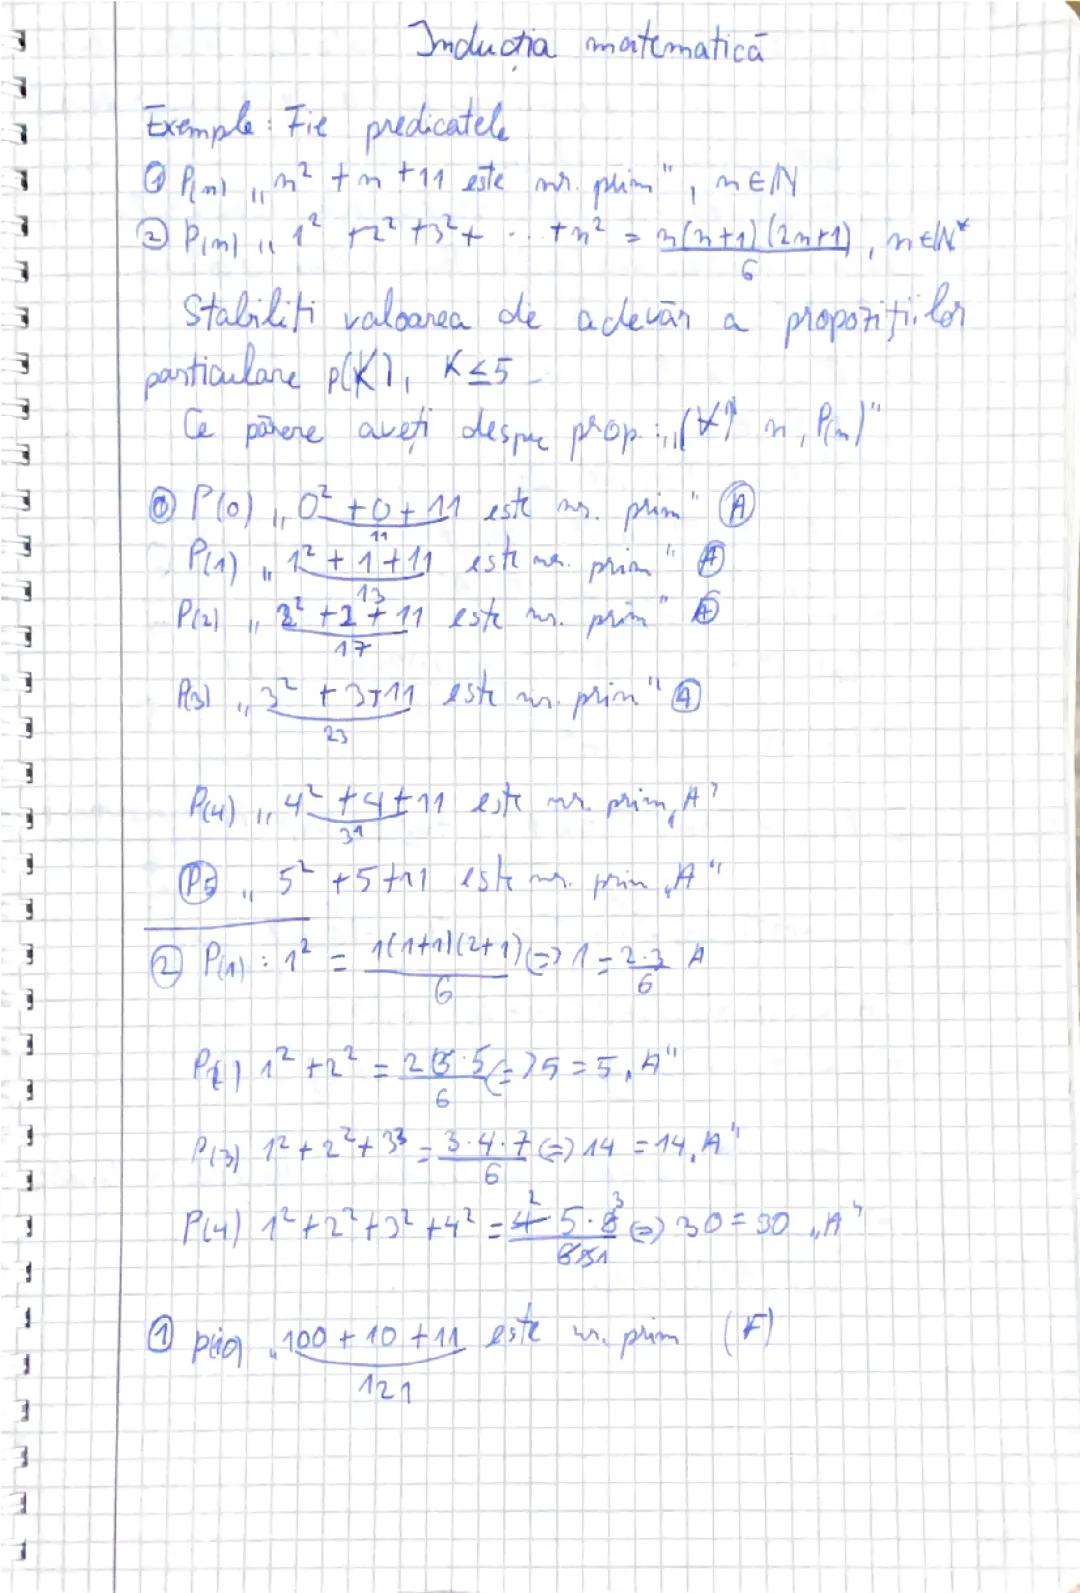 Inducția matematică
Exemple: Fie predicatele
① P(n) „n² + n + 11 este nr. prim", n∈ℕ
② P(n) „1² + 2² + 3² + ... + n² = n(n+1)(2n+1)/6, n∈ℕ*
Stabiliți valoarea de adevăr a propozițiilor
particulare p(K), K≤5
Ce părere aveți despre prop.: „(∀) n, P(n)"
① P(0) „0² + 0 + 11 este nr. prim" Ⓐ
11
P(1) „1² + 1 + 11 este nr. prim" Ⓐ
13
P(2) „2² + 2 + 11 este nr. prim" Ⓐ
17
P(3) „3² + 3 + 11 este nr. prim" Ⓐ
23
P(4) „4² + 4 + 11 este nr. prim „A"
31
P5 „5² + 5 + 11 este nr. prim „A"
② P(1) : 1² = 1(1+1)(2+1)/6 (=) 1 = 2·3/6 A
P(2) 1² + 2² = 2·3·5/6 (=) 5 = 5 „A"
P(3) 1² + 2² + 3³ = 3·4·7/6 (=) 14 = 14 „A"
P(4) 1² + 2² + 3² + 4² = 4·5· (=) 30 = 30 „A"
① p(10) „100 + 10 + 11 este nr. prim (F)
121